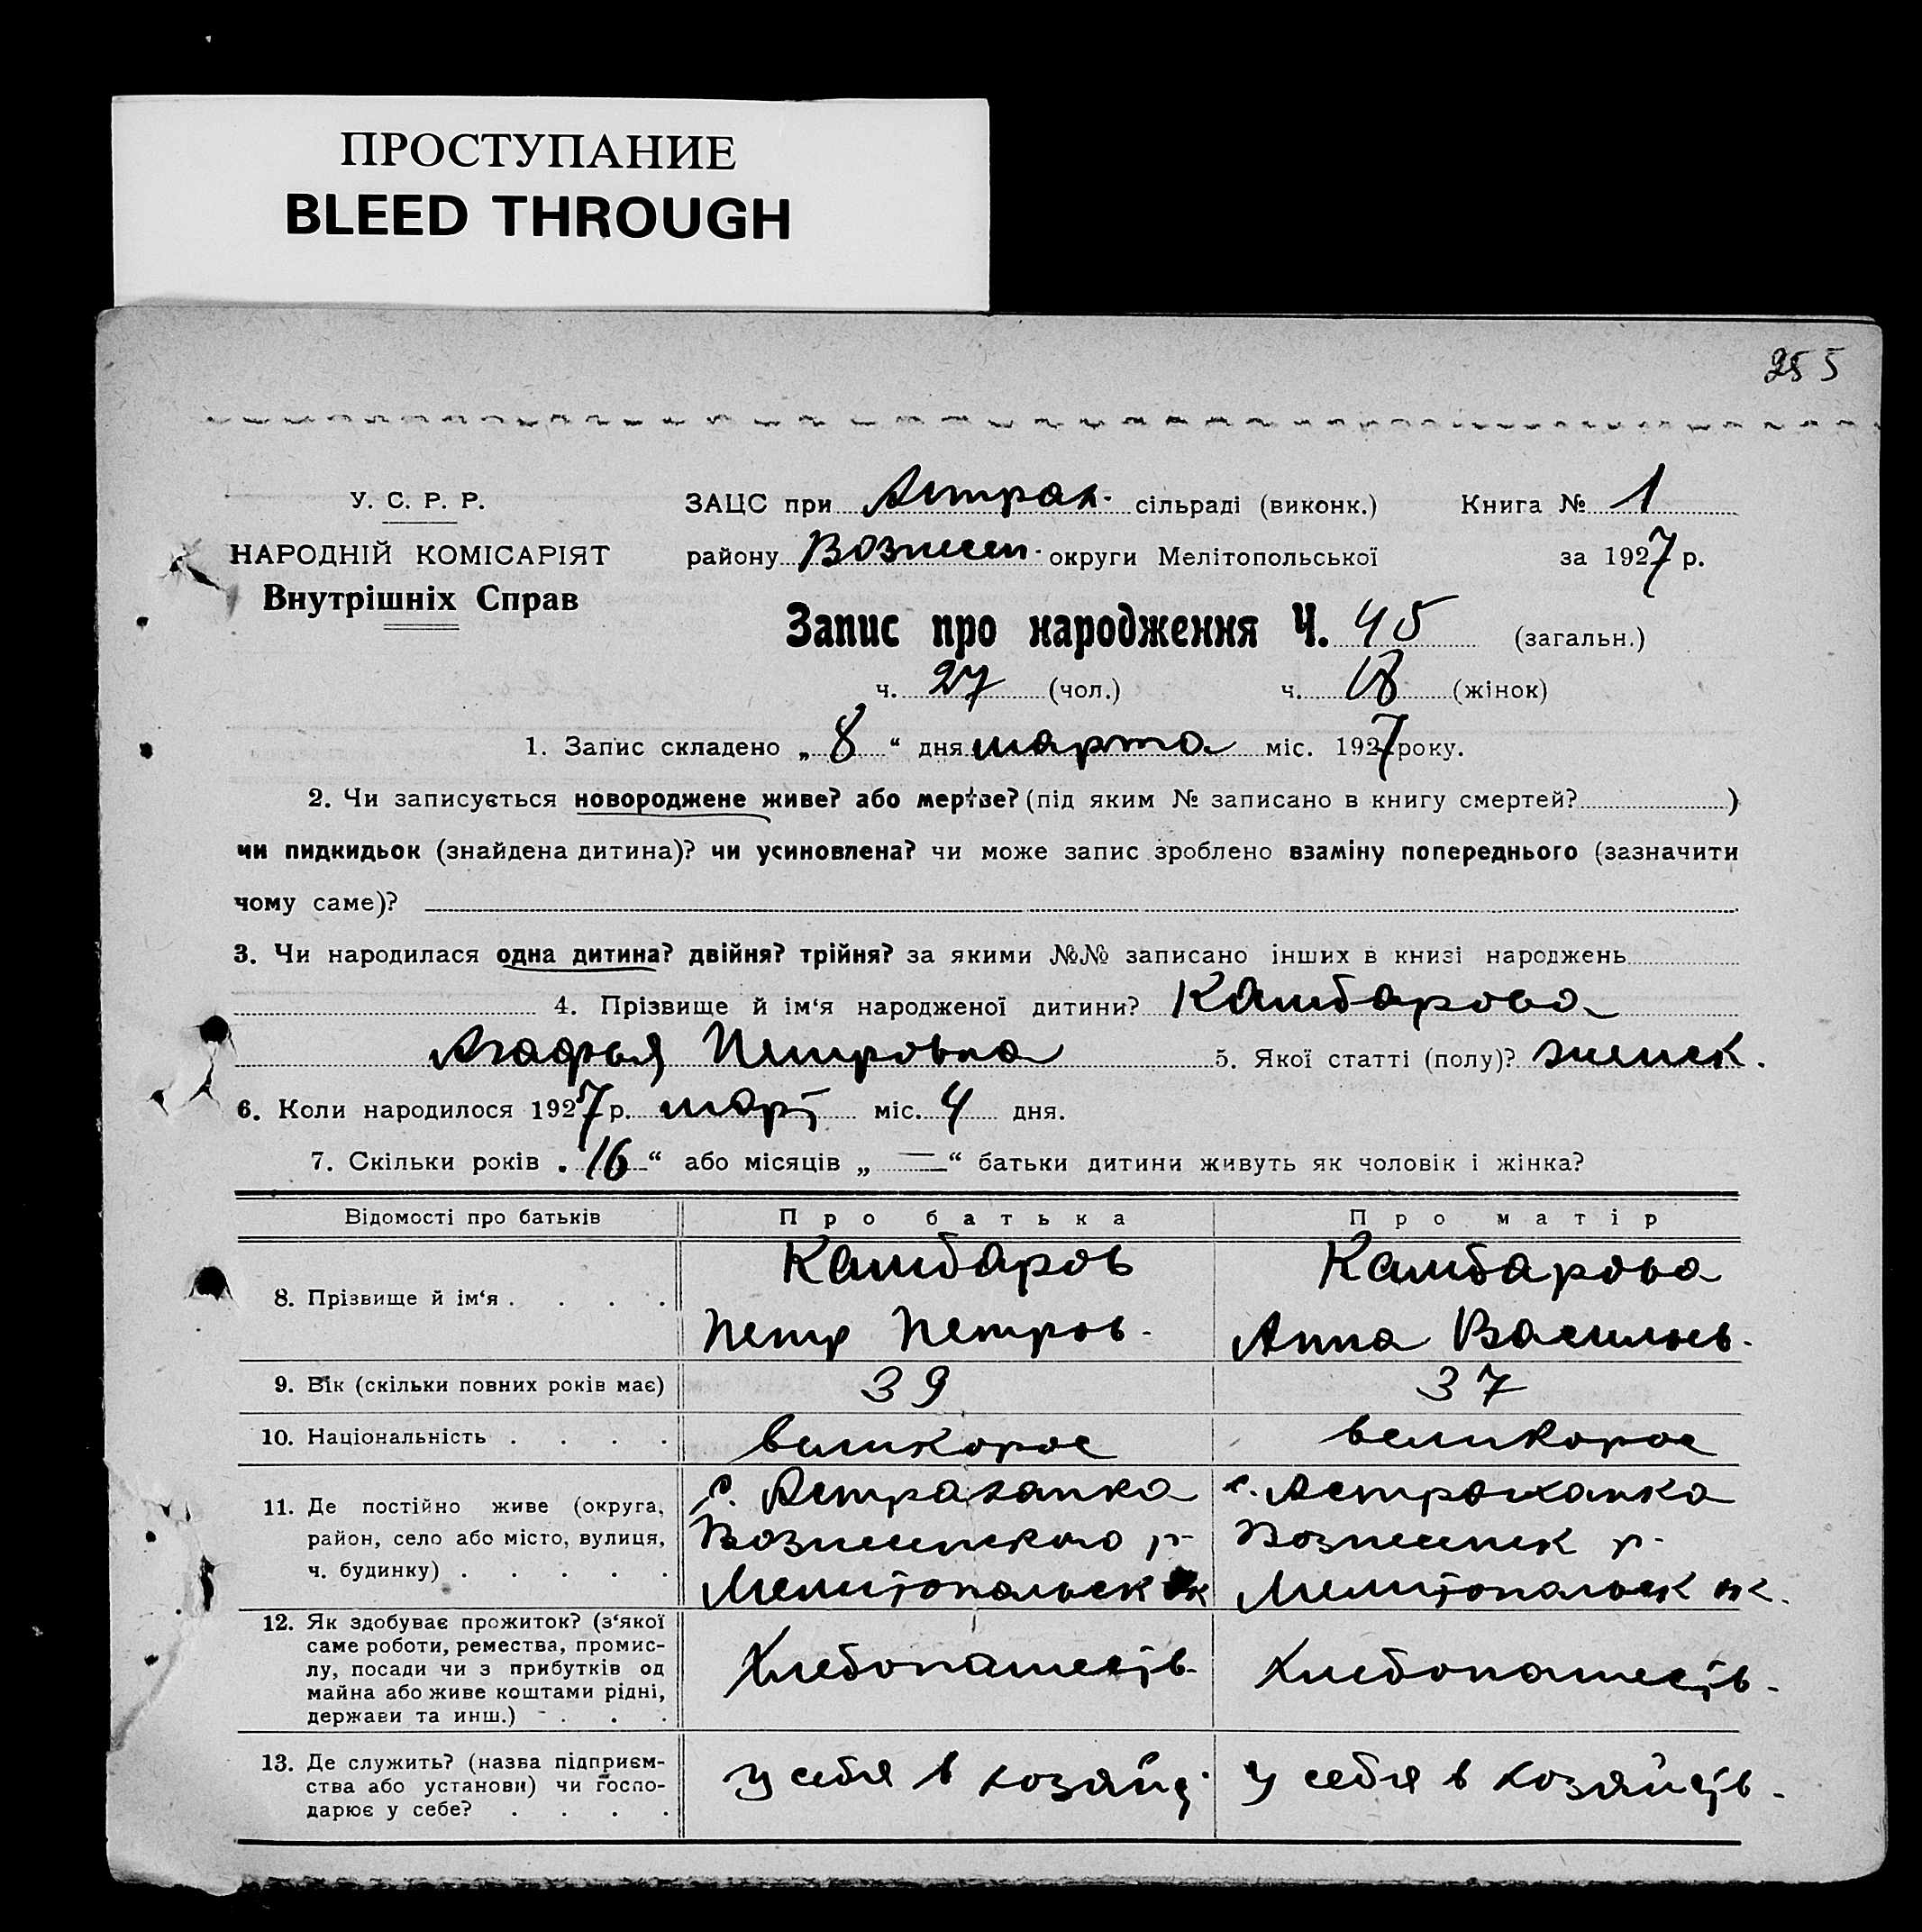 ПРОСТУПАНИЕ
BLEED THROUGH
255
У. С. Р. Р.
НАРОДНІЙ КОМІСАРІЯТ
Внутрішніх Справ
ЗАЦС при Астрах. сільраді (виконк.) Книга № 1
району Вознесен. округи Мелітопольської за 1927 р.
Запис про народження Ч. 45 (загальн.)
ч. 27 (чол.) ч. 18 (жінок)
1. Запис складено „ 8 “ дня марта міс. 1927 року.
2. Чи записується новороджене живе? або мертве? (під яким № записано в книгу смертей? )
чи пидкидьок (знайдена дитина)? чи усиновлена? чи може запис зроблено взаміну попереднього (зазначити
чому саме)?
3. Чи народилася одна дитина? двійня? трійня? за якими №№ записано інших в книзі народжень
4. Прізвище й ім‘я народженої дитини? Камбарова
Агафья Петровна 5. Якої статті (полу)? женск.
6. Коли народилося 1927 р. март міс. 4 дня.
7. Скільки років „ 16 “ або місяців „ — “ батьки дитини живуть як чоловік і жінка?
Відомості про батьків Про батька Про матір
8. Прізвище й ім‘я . . . . Камбаров Камбарова
Петр Петров. Анна Васильев.
9. Вік (скільки повних років має) 39 37
10. Національність . . . . великорос великорос
11. Де постійно живе (округа, с. Астраханка с. Астраханка
район, село або місто, вулиця, Вознесенского р- Вознесенск р-
ч. будинку) . . . . . Мелитопольск ок Мелитопольск ок.
12. Як здобуває прожиток? (з‘якої
саме роботи, ремества, промис-
лу, посади чи з прибутків од Хлебопашеств. Хлебопашеств.
майна або живе коштами рідні,
держави та инш.) . . .
13. Де служить? (назва підприєм-
ства або установи) чи госпо- у себя в хозяйст. у себя в хозяйств.
дарює у себе? . . . .